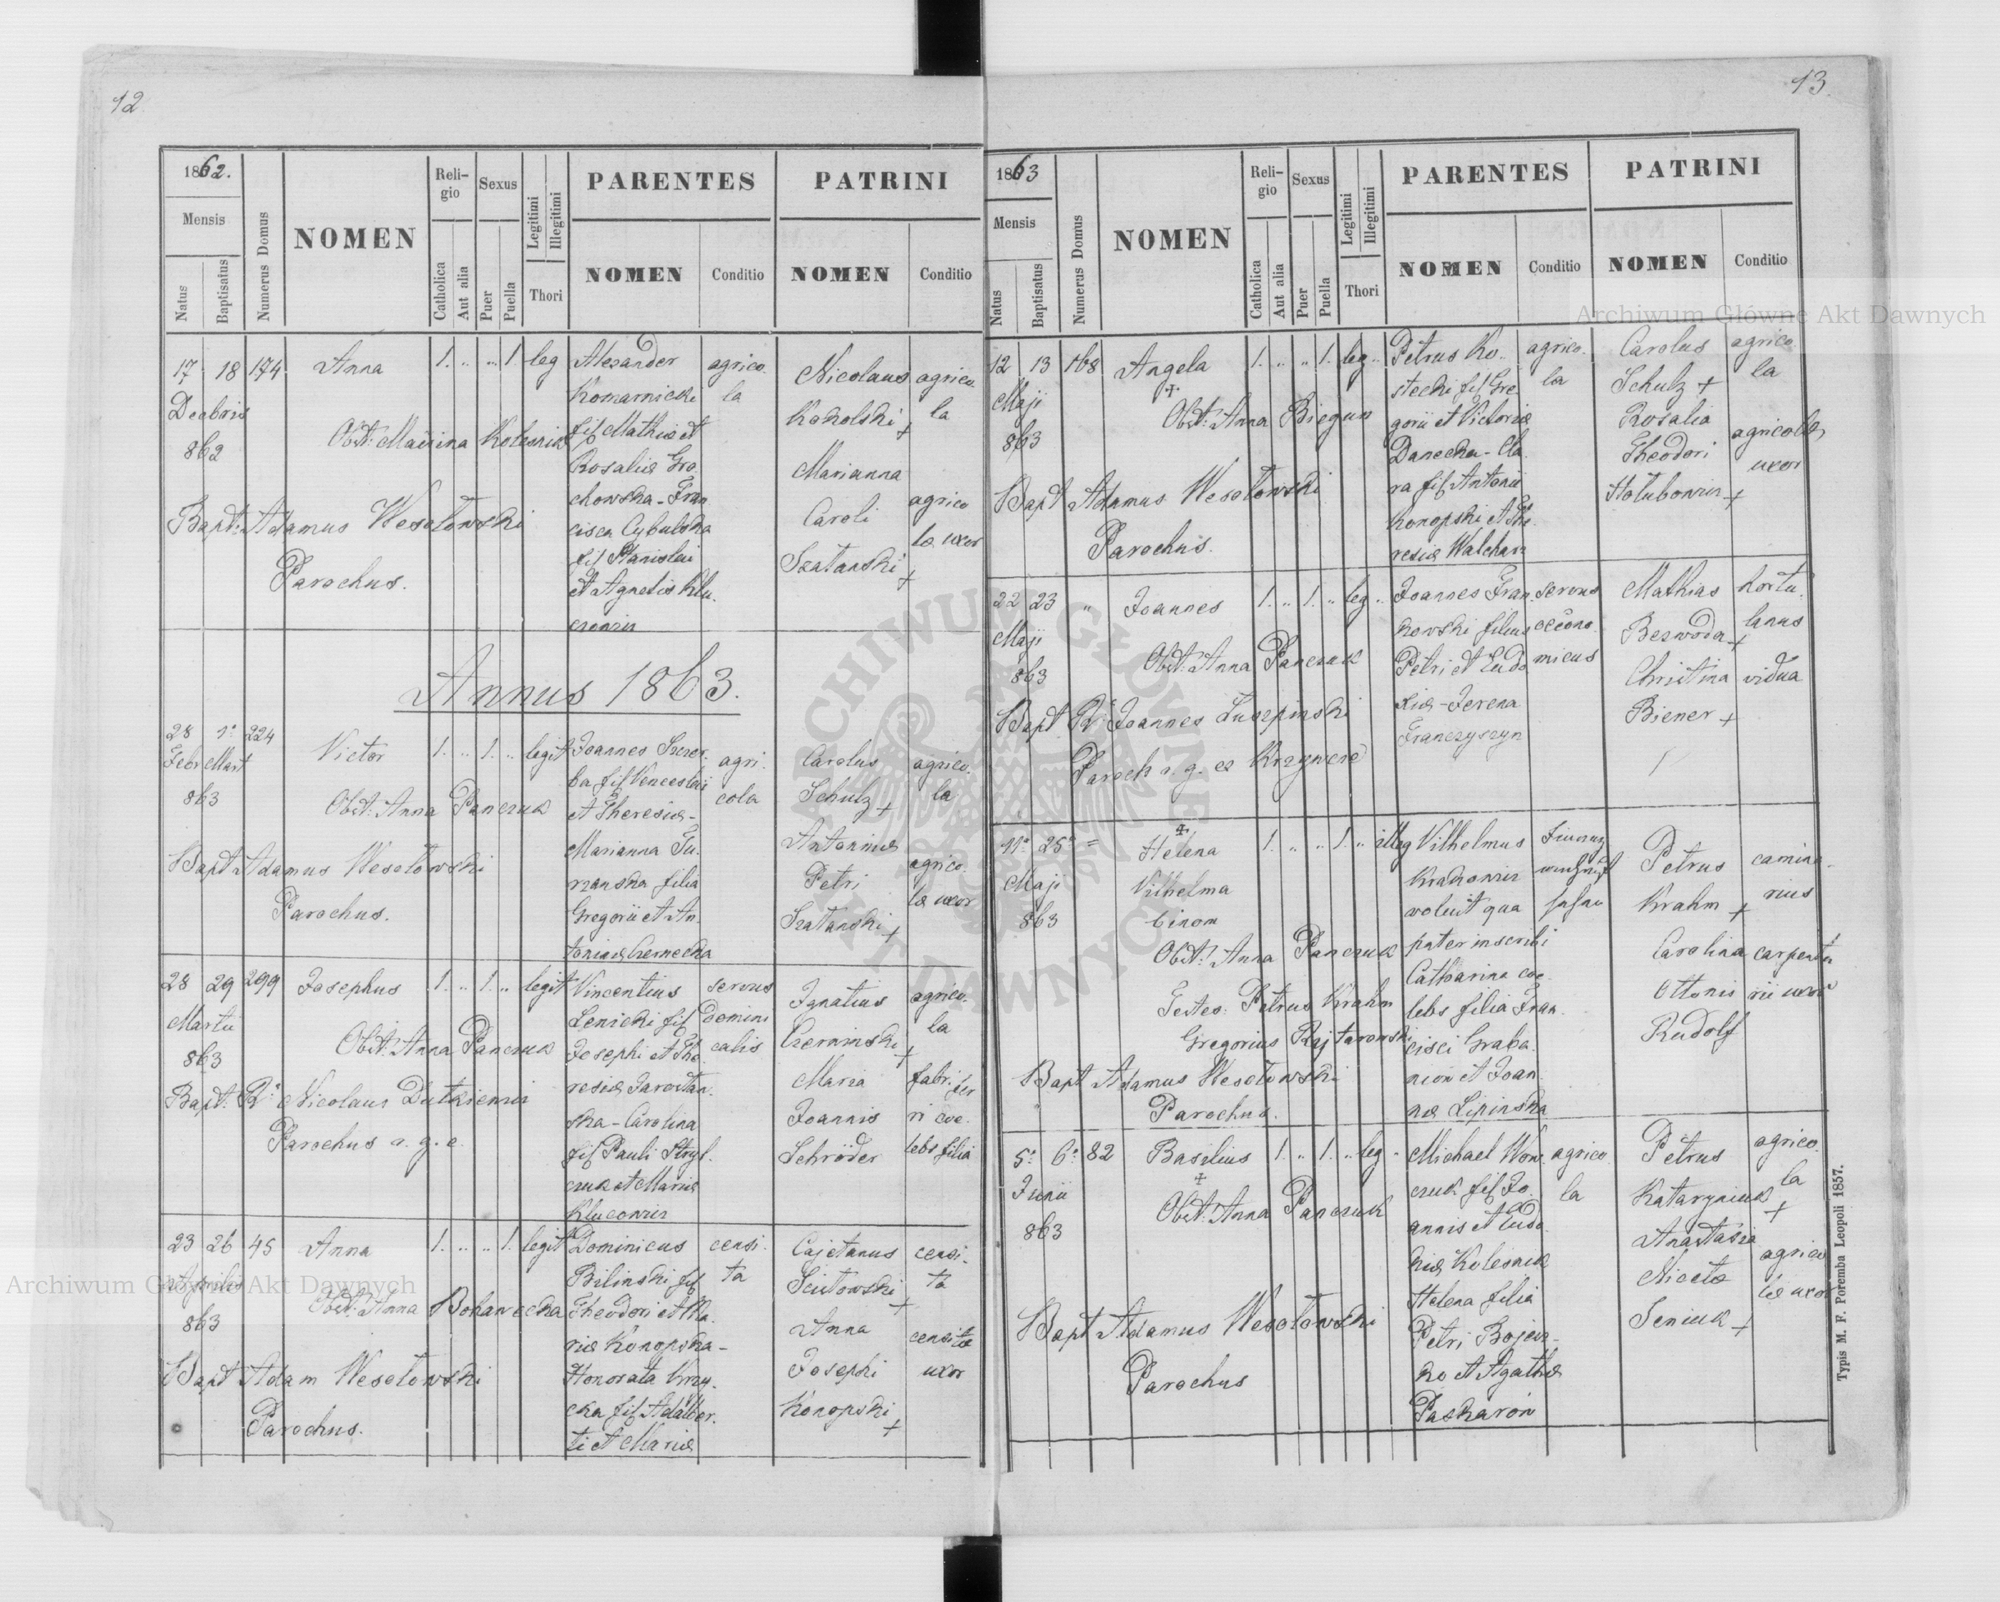 12.
1862.
Mensis
Natus
Baptisatus
Numerus Domus
NOMEN
Religio
Catholica
Aut alia
Sexus
Puer
Puella
Legitimi
Illegitimi
Thori
PARENTES
NOMEN
Conditio
PATRINI
NOMEN
Conditio
17 18 174 Anna 1. „ „ 1. leg
Decbris
862
Obst: Maurina Kolesnik
Bapt: Adamus Wesołowski
Parochus.
Alexander
Komarnicki
fil Mathiæ et
Rosaliæ Gro
chowska - Fran
cisca Cybulska
fil Stanislai
et Agnetis Klu
cewicz
agrico
la
Nicolaus
Kokolski +
Marianna
Caroli
Szatanski +
agrico
la
agrico
læ uxor
Annus 1863.
28 1ª 224 Victor 1. „ 1. „ legit
Febr Mart
863
Obst: Anna Panczuk
Bapt Adamus Wesołowski
Parochus.
Joannes Szczer
ba fil Venceslai
et Theresiæ -
Marianna Tu
rzanska filia
Gregorii et An
toniæ Czernecka
agri
cola
Carolus
Schulz +
Antonina
Petri
Szatanski +
agrico
la
agrico
læ uxor
28 29 299 Josephus 1. „ 1. „ legit
Martii
863
Obst: Anna Panczuk
Bapt: R: Nicolaus Dutkiewicz
Parochus r. g. c.
Vincentius
Lenicki fil
Josephi et The
resiæ Jarosłan
ska - Carolina
fil Pauli Stryl
czuk et Mariæ
Klucowicz
servus
domini
calis
Ignatius
Czerminski +
Maria
Joannis
Schröder
agrico
la
fabri fer
ri coe
lebs filia
23 26 45 Anna 1. „ „ 1. legit
Aprilis
863
Obst: Anna Bohanecka
Bapt Adam Wesołowski
Parochus.
Dominicus
Bilinski fil
Theodori et Ma
riæ Konopska -
Honorata Krzy
cka fil Adalber
ti et Mariæ
censi
ta
Cajetanus
Scutowski +
Anna
Josephi
Konopski +
censi
ta
censitæ
uxor
13.
1863
Mensis
Natus
Baptisatus
Numerus Domus
NOMEN
Religio
Catholica
Aut alia
Sexus
Puer
Puella
Legitimi
Illegitimi
Thori
PARENTES
NOMEN
Conditio
PATRINI
NOMEN
Conditio
12 13 168 Angela 1. „ „ 1. leg
+
Maji
863
Obst: Anna Biegun
Bapt Adamus Wesołowski
Parochus.
Petrus Ko
stecki fil Gre
gorii et Victoriæ
Danecka - Cla
ra fil Antonii
Konopski et The
resiæ Walchan
agrico
la
Carolus
Schulz +
Rosalia
Theodori
Hołubowicz +
agrico
la
agricolæ
uxor
22 23 „ Joannes 1. „ 1. „ leg
Maji
863
Obst: Anna Panczuk
Bapt R: Joannes Luszpinski
Paroch r. g. ex Krzywcze
Joannes Fran
kowski filius
Petri et Eudo
xiæ - Terena
Franczyszyn
servus
oecono
micus
Mathias
Bezwoda +
Christina
Biener +
hortu
lanus
vidua
11ª 25ª = Helena 1. „ „ 1. illeg
+
Maji
863
Vilhelma
binom
Obst: Anna Panczuk
Testes: Petrus Krahm
Gregorius Rejtarowski
Bapt Adamus Wesołowski
Parochus.
Vilhelmus
Krakowicz
voluit qua
pater inscribi
Catharina coe
lebs filia Fran
cisci Graba
niow et Joan
næ Lipinska
Petrus
Krahm +
Carolina
Ottonis
Rudolf
camina
rius
carpenta
rii uxor
5ª 6ª 82 Basilius 1. „ 1. „ leg
+
Junii
863
Obst: Anna Panczuk
Bapt Adamus Wesołowski
Parochus
Michael Won
czuk fil Jo
annis et Eudo
kiæ Kolesnik
Helena filia
Petri Bojcz
ko et Agathæ
Paskaron
agrico
la
Petrus
Katarzniuk +
Anastasia
Nicetæ
Seniuk +
agrico
la
agrico
læ uxor
Typis M. F. Poremba Leopoli 1857.
Archiwum Główne Akt Dawnych
Archiwum Główne Akt Dawnych
ARCHIWUM GŁÓWNE AKT DAWNYCH